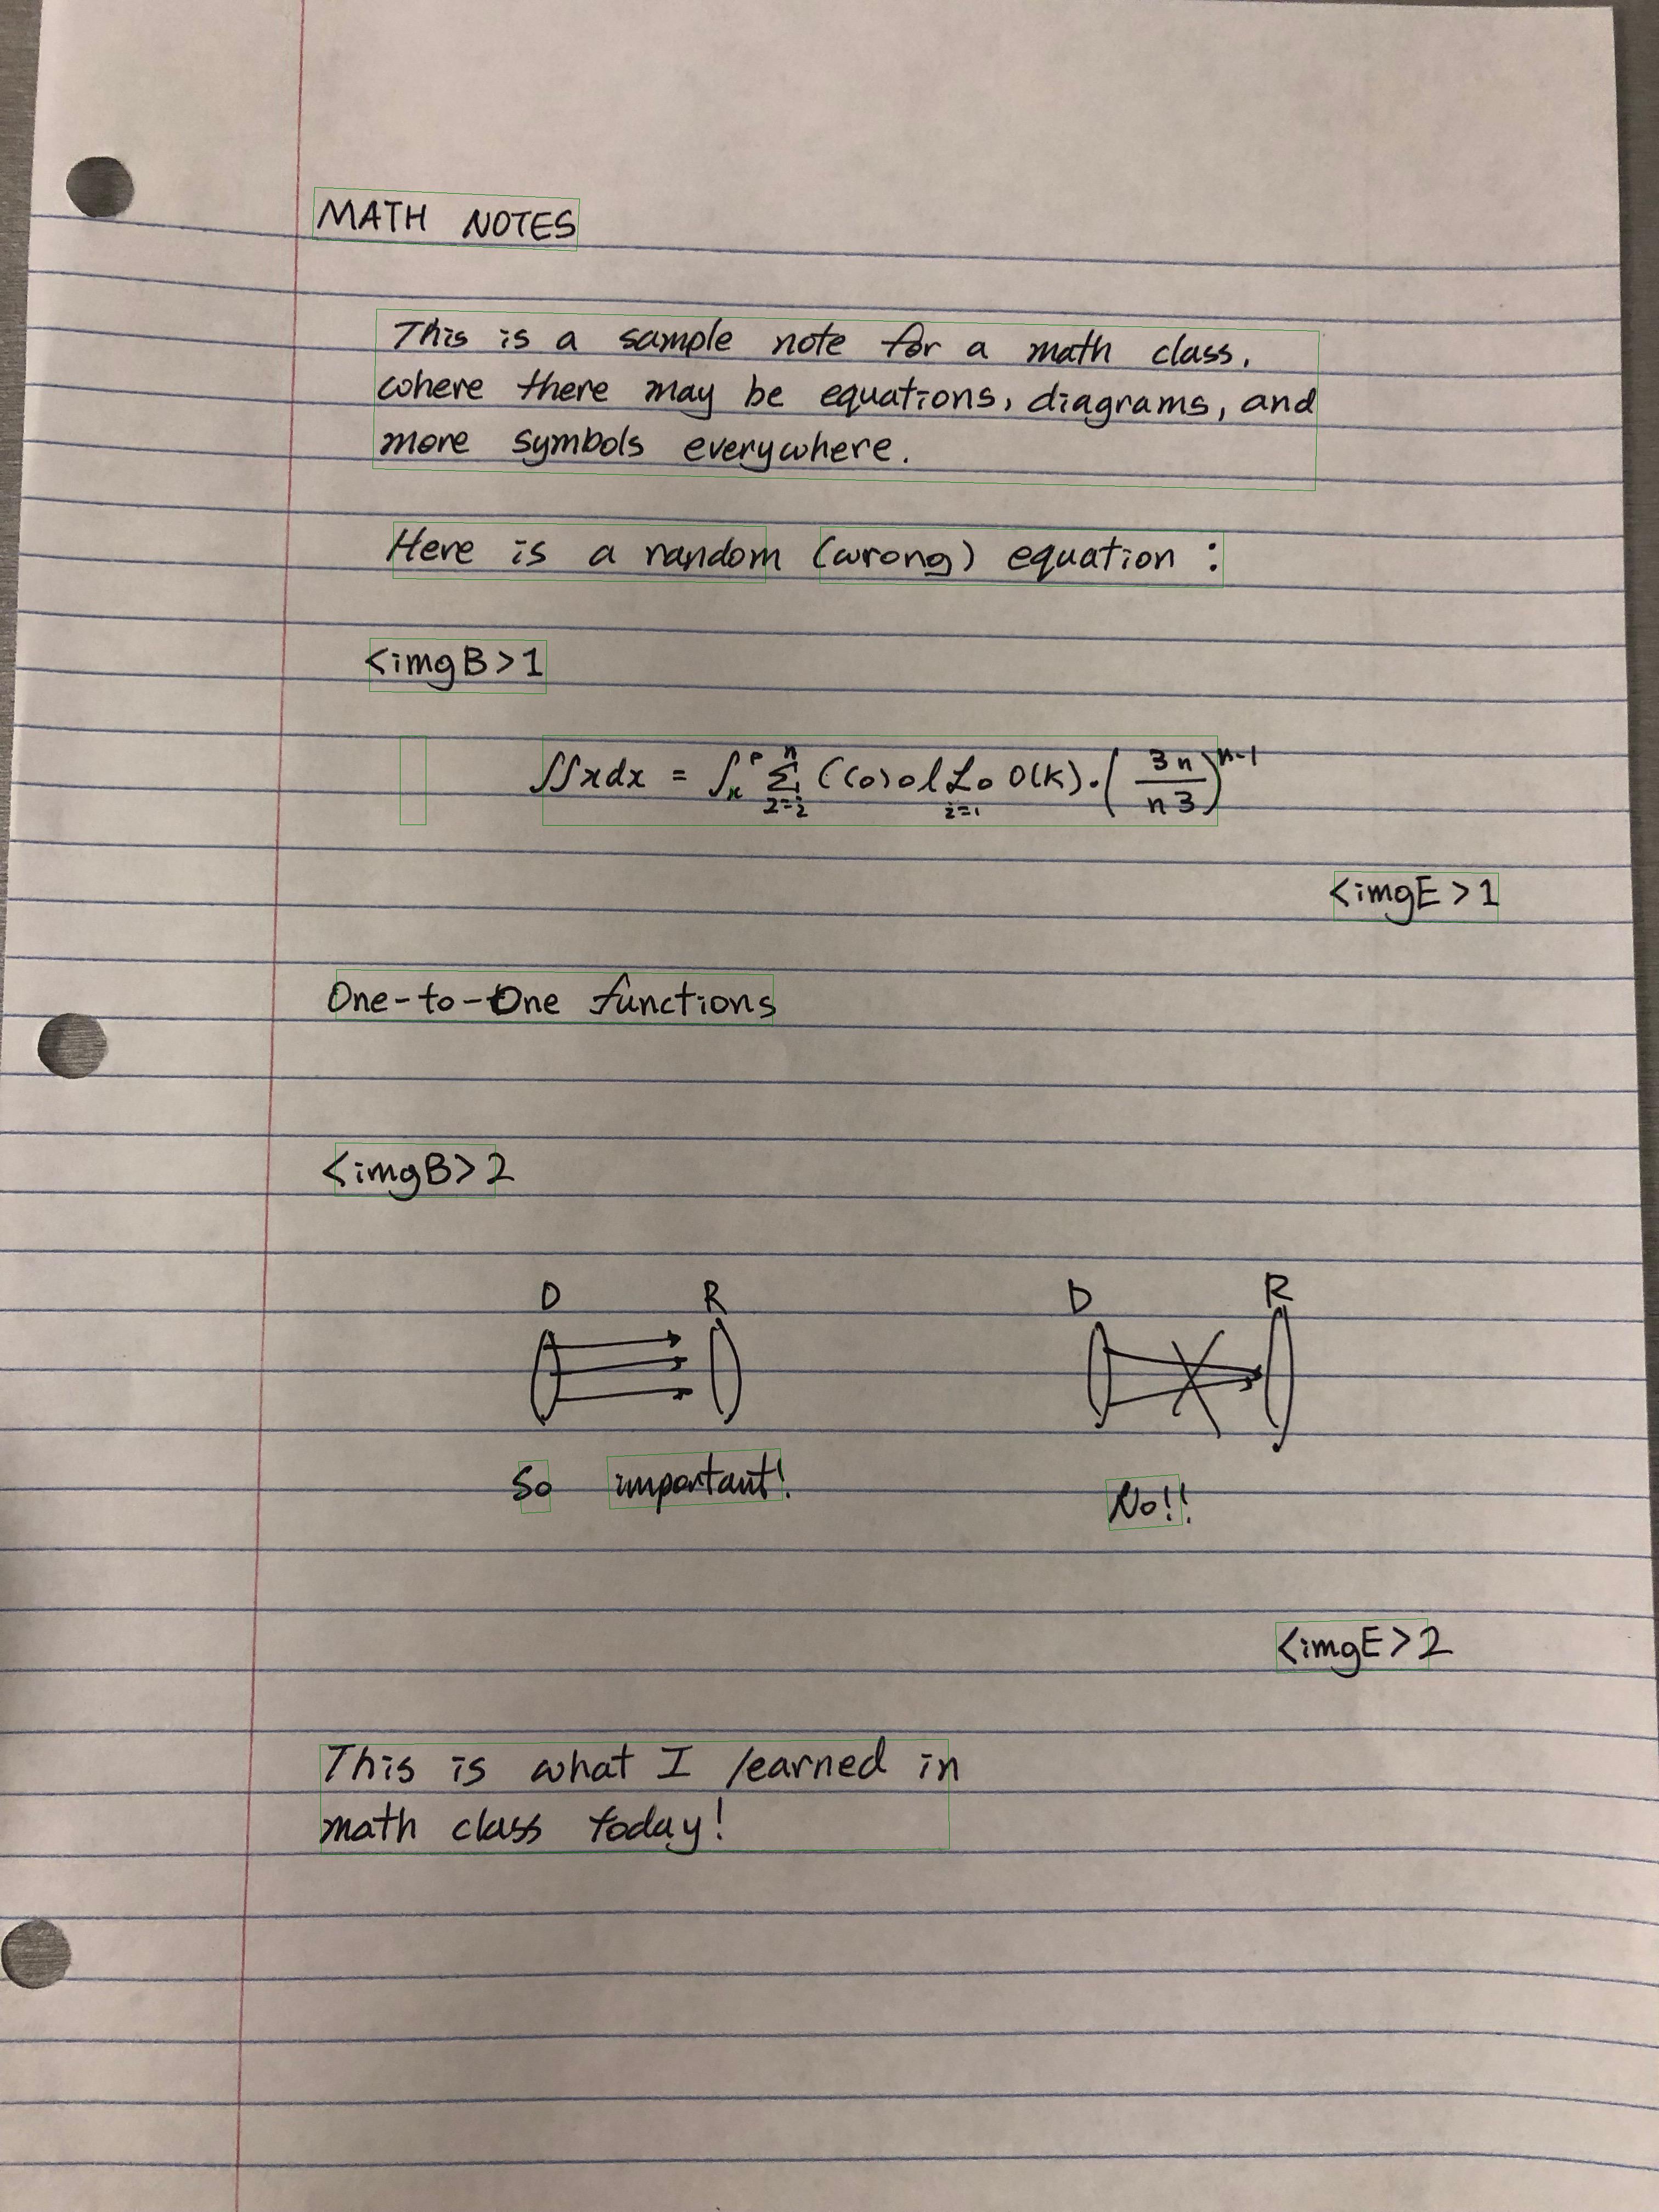 MATH NOTES
This is a sample note for a math class,
where there may be equations, diagrams, and
more symbols everywhere.
Here is a random (wrong) equation :
<imgB>1
∫∫xdx = ∫ₓᴾ Σ ( (o) o l ℒo O(k) · ( 3n / n3 )ⁿ⁻¹
<imgE>1
One-to-One functions
<imgB>2
D R D R
So important! No!!
<imgE>2
This is what I learned in
math class today!